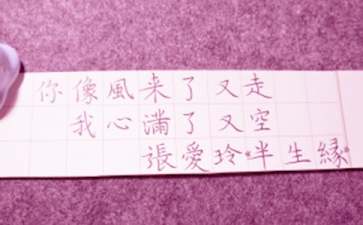 你像風来了又走
我心滿了又空
張愛玲*半生緣*